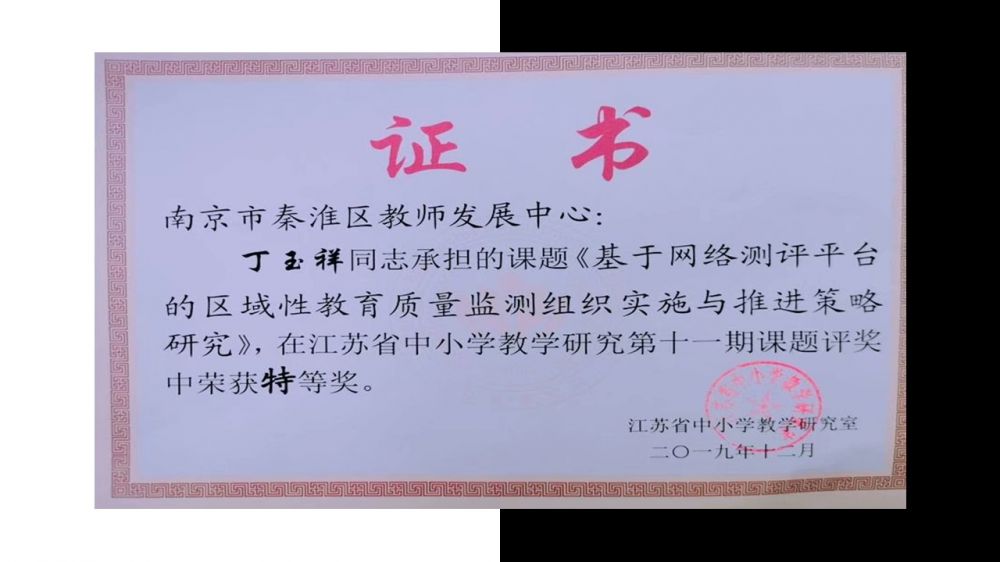 证书
南京市秦淮区教师发展中心：
丁玉祥同志承担的课题《基于网络测评平台
的区域性教育质量监测组织实施与推进策略
研究》，在江苏省中小学教学研究第十一期课题评奖
中荣获特等奖。
江苏省中小学教学研究室
二〇一九年十二月